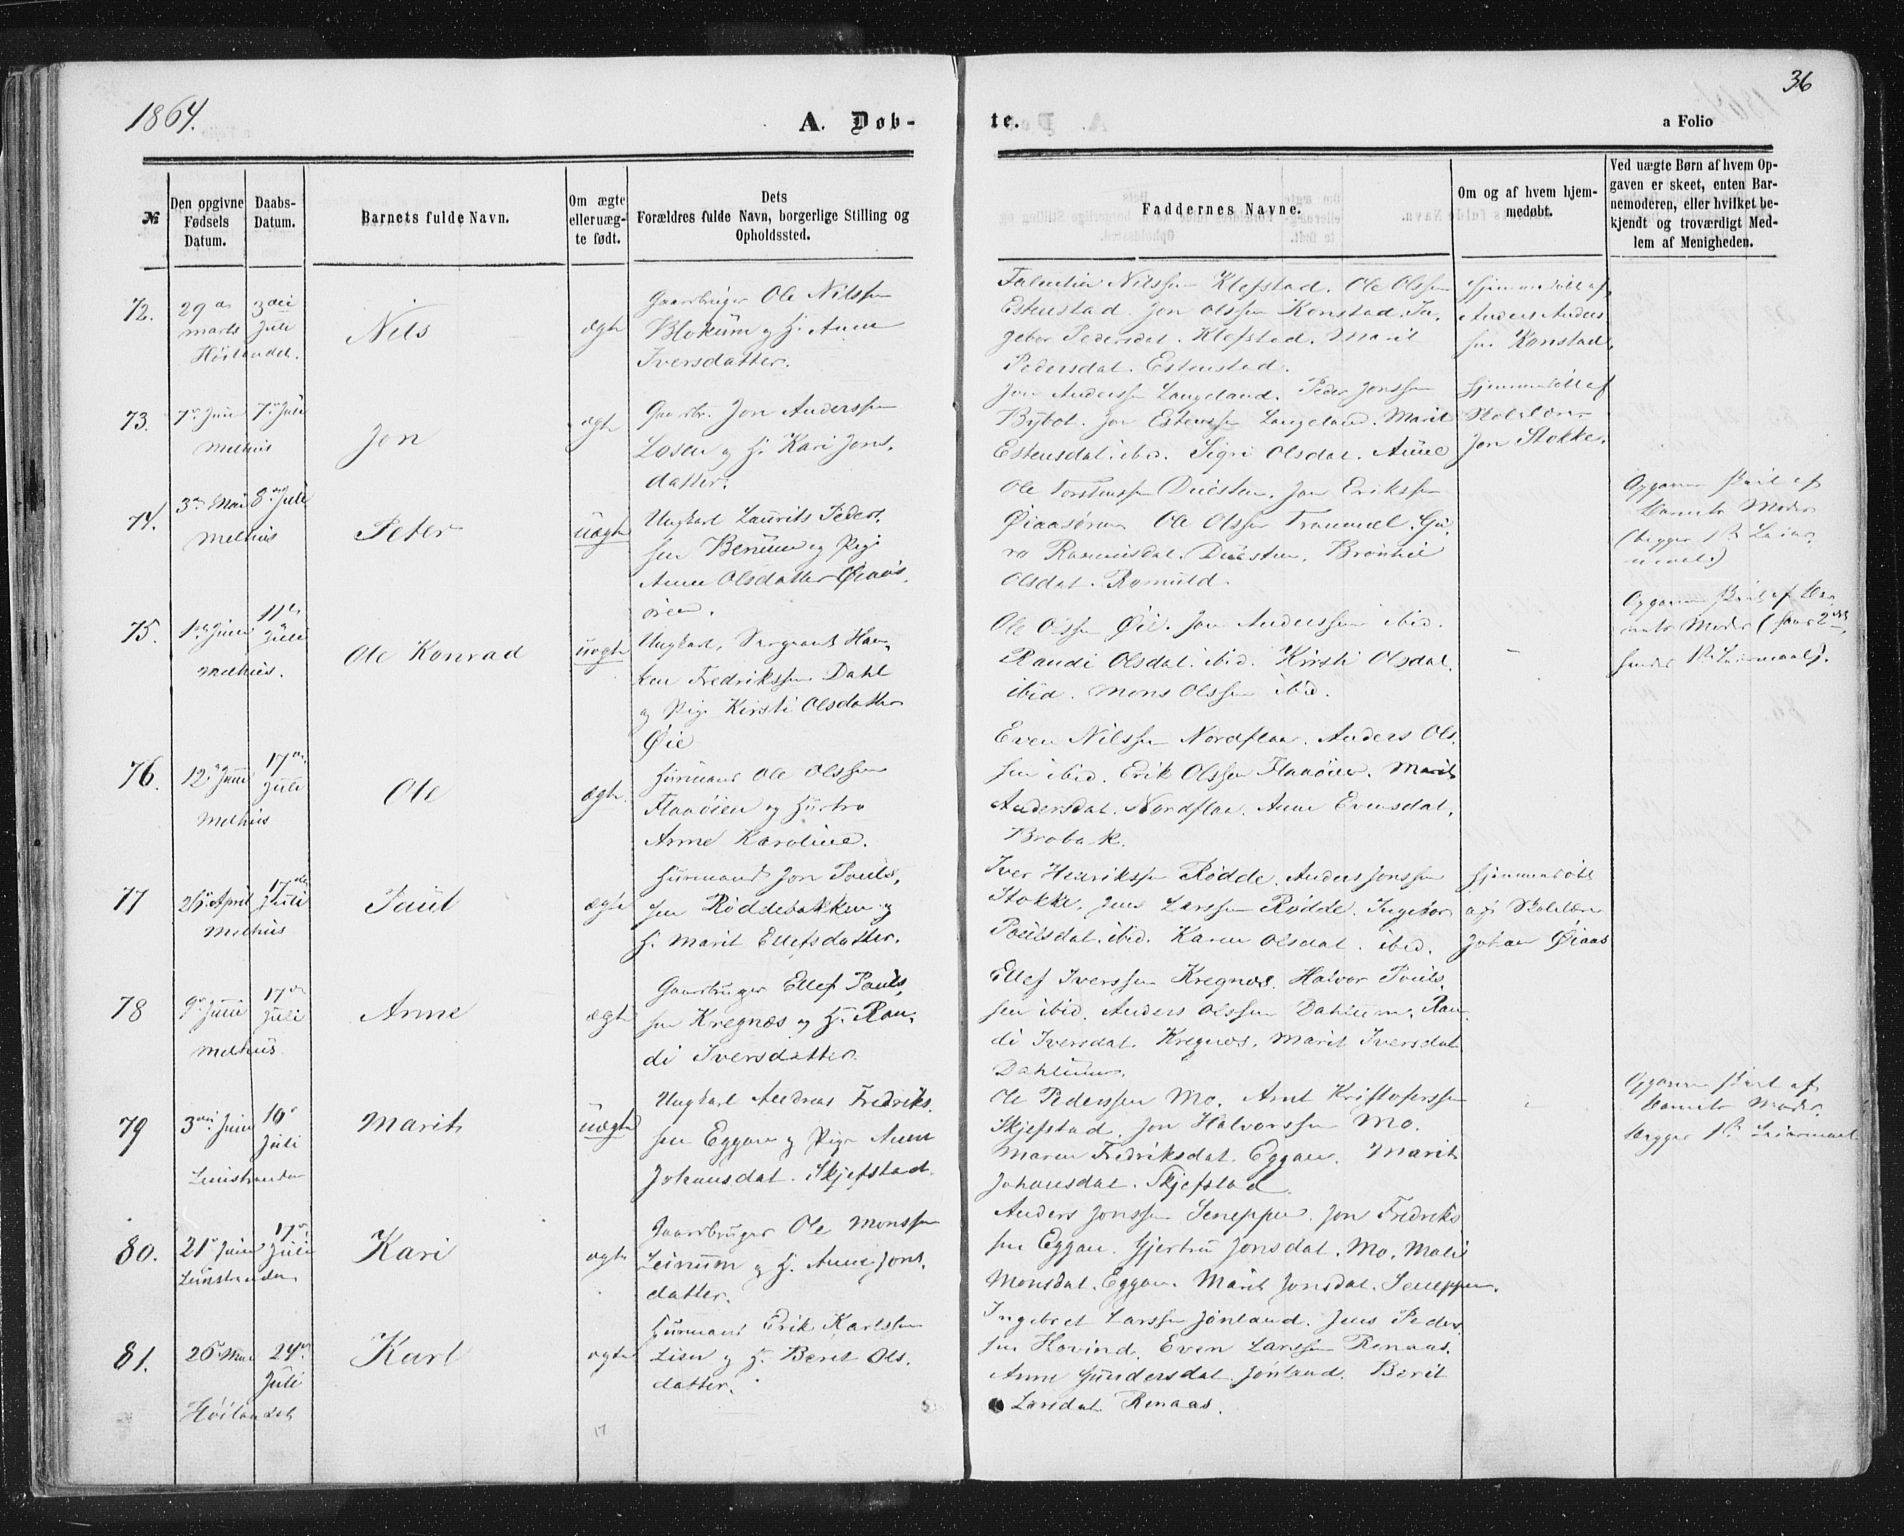 1864.
A. Døb-
te.
36
a Folio
№
Den opgivne
Fødsels
Datum.
Daabs-
Datum.
Barnets fulde Navn.
Om ægte
eller uæg-
te født.
Dets
Forældres fulde Navn, borgerlige Stilling og
Opholdssted.
Faddernes Navne.
Om og af hvem hjem-
medøbt.
Ved uægte Børn af hvem Op-
gaven er skeet, enten Bar-
nemoderen, eller hvilket be-
kjendt og troværdigt Med-
lem af Menigheden.
72.
29
marts
Høilandet.
3die
Juli
Nils
ægte
Gaardbruger Ole Nilssen
Blokum og H. Anne
Iversdatter.
Nilssen Klefstad. Ole Olssen
Estenstad. Jon Olssen Konstad. In-
gebor Pedersdat. Klefstad. Marit
Pedersdat. Estenstad.
Hjemmedøbt af
Anders Anders
sen Konstad.
73.
7de Juni
Melhus
7de Juli
Jon
ægte
Gaardbr. Jon Anderssen
Losen og H. Kari Jons-
datter.
Jon Anderssen Langeland. Peder Jonssen
Bybot. Jon Estenssen Langeland. Marit
Estensdat. ibid. Sigri Olsdat. Aune
Hjemmedøbt af
Skolelærer
Jon Stokke.
74.
3die Mai
Melhus
8de Juli
Peter
uægte
Ungkarl Laurits Peders-
sen Benum og Pige
Anne Olsdatter Øiaas-
øien.
Ole Torstenssen Duesten. Jon Erikssen
Øiaasøren Ole Olssen Trammel. Gu-
ro Rasmusdat. Duesten. Brønhil
Olsdat. Romuld.
Opgaven skeet af
Barnets Moder
(begges 1ste Leier-
maal.)
75.
1ste Juni
Melhus.
11te
Juli
Ole Konrad
uægte
Ungkarl, Sergeant Han-
ken Fredrikssen Dahl
og Pige Kirsti Olsdatter
Øie
Ole Olssen Øie. Jon Anderssen ibid.
Randi Olsdat. ibid. Kirsti Olsdat.
ibid. Mons Olssen ibid.
Opgaven skeet af Bar-
nets Moder (hans 2det,
hendes 1ste Leiermaal).
76.
12te Juni
Melhus
17de
Juli
Ole
ægte.
Huusmand Ole Olssen
Flaaøien og Hustro
Anne Karoline.
Even Nilssen Nordflaa. Anders Ols-
sen ibid. Erik Olssen Flaaøien. Marit
Andersdat. Nordflaa. Anne Evensdat.
Brobak.
77
26de April
Melhus
17de
Juli
Paul
ægte
Huusmand Jon Pouls-
sen Røddebakken og
H. Marit Ellefsdatter.
Iver Henrikssen Rødde. Anders Jonssen
Stokke. Jens Larssen Rødde. Ingebor
Poulsdat. ibid. Karen Olsdat. ibid.
Hjemmedøbt
af Skolelærer
Johan Øiaas
78
9de Juni
Melhus.
17de
Juli
Anne
ægte
Gaardbruger Ellef Pouls-
sen Kregnæs og H. Ran-
di Iversdatter.
Ellef Iverssen Kregnæs. Halvor Pouls-
sen ibid. Anders Olssen Dahlum. Ran-
di Iversdat. Kregnæs. Marit Iversdat
Dahlum.
79
3die Juni
Leinstranden
10de
Juli
Marit
uægte
Ungkarl Andreas Fredriks-
sen Eggan og Pige Anne
Johansdat. Skjefstad.
Ole Pederssen Mo. Arnt Kristoferssen
Skjefstad. Jon Halvorssen Mo.
Maren Fredriksdat. Eggan. Marit
Johansdat. Skjefstad
Opgaven skeet af
Barnets Moder.
begges 1ste Leiermaal
80.
21de Juni
Leinstranden
17de
Juli
Kari
ægte
Gaardbruger Ole Monssen
Leinum og H. Anne Jons-
datter.
Anders Jonssen Seneppen. Jon Fredriks
sen Eggan. Gjertru Jonsdat. Mo. Malit
Monsdat. Eggan. Marit Jonsdat. Seneppen.
81.
26de Mai
Høilandet
24de
Juli
Karl
ægte
Huusmand Erik Karlssen
Lien og H. Beret Ols-
datter.
Ingebret Larssen Jonland. Jens Peder-
sen Hovind. Even Larssen Renaas.
Anne Gundersdat. Jonland. Berit
Larsdat. Renaas.